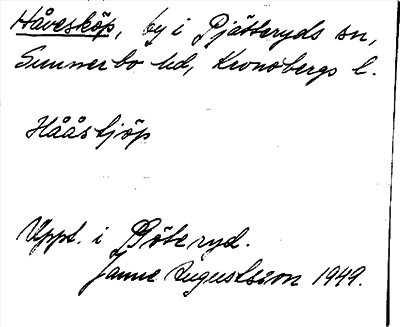 Håvesköp, by i Pjätteryds sn,
Sunnerbo hd, Kronobergs l.
Hååstjöp
Uppt. i Göteryd.
Janne Augustsson 1949.